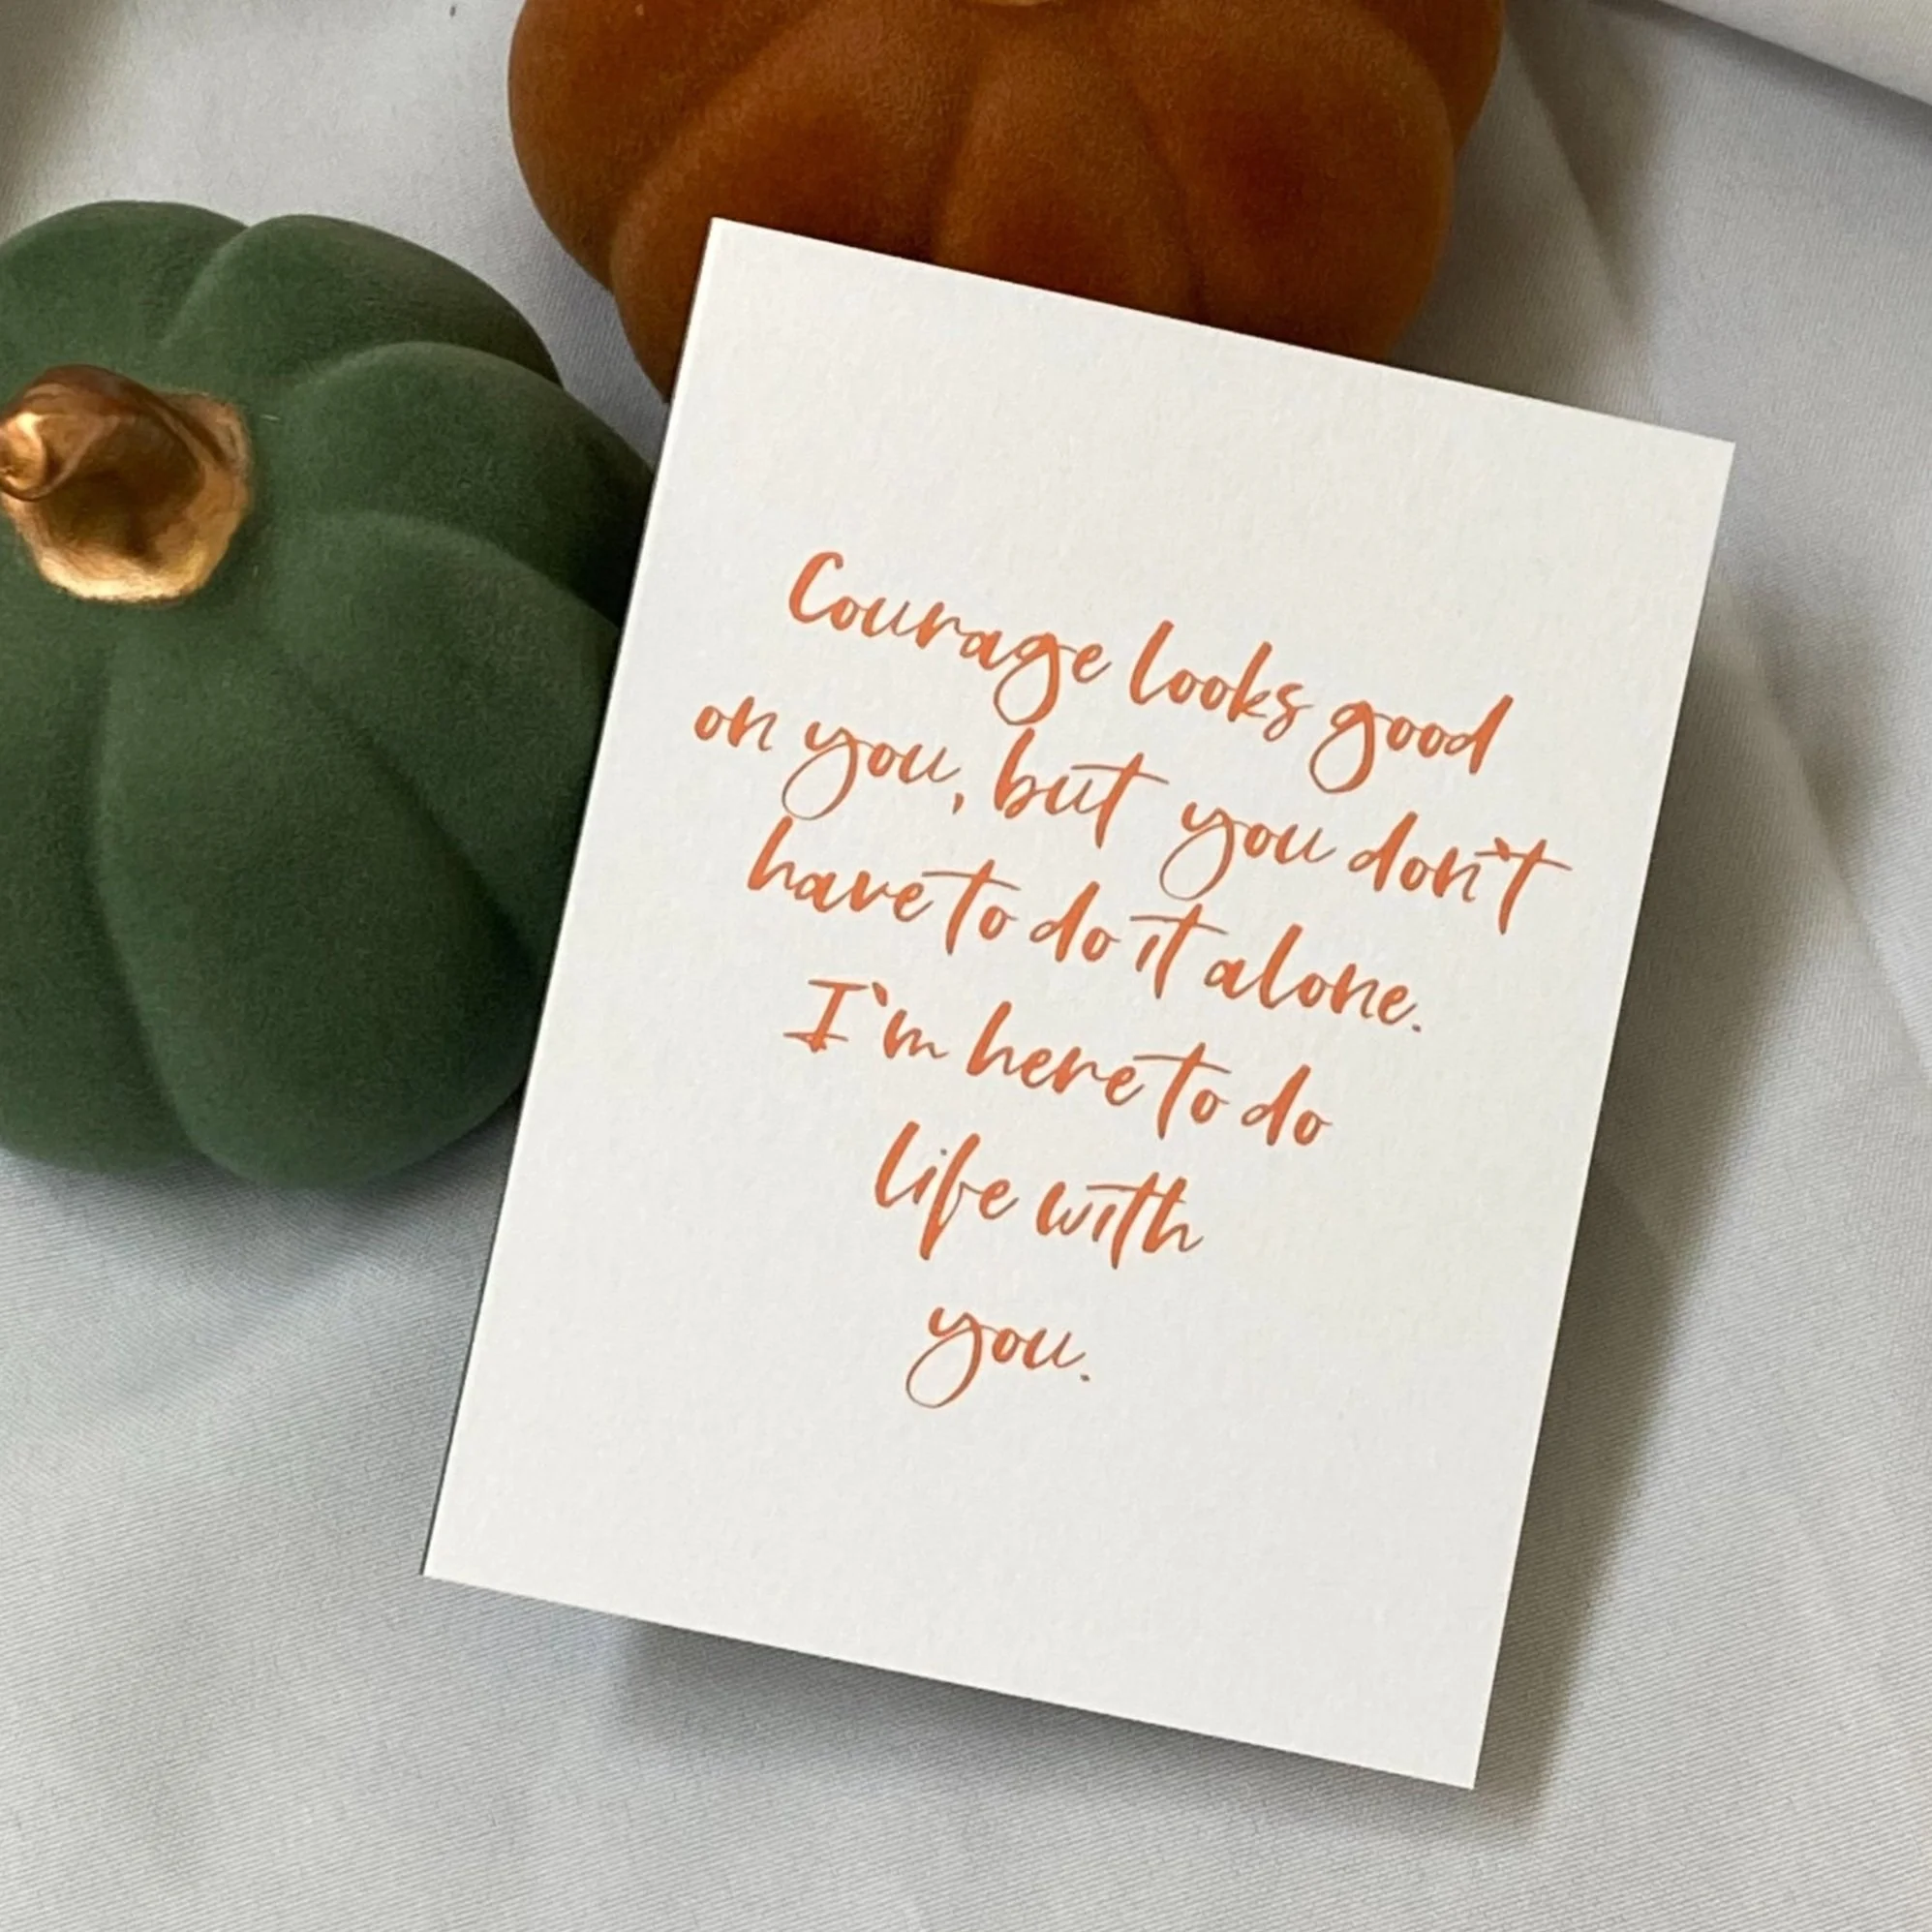 Courage looks good
on you, but you don't
have to do it alone.
I'm here to do
life with
you.